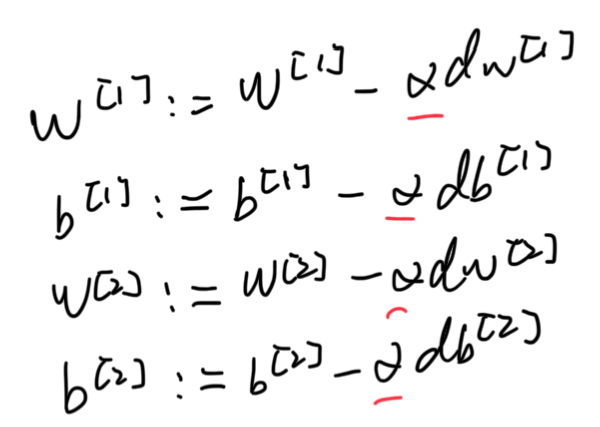 w^[1] := w^[1] - αdw^[1]
b^[1] := b^[1] - αdb^[1]
w^[2] := w^[2] - αdw^[2]
b^[2] := b^[2] - αdb^[2]